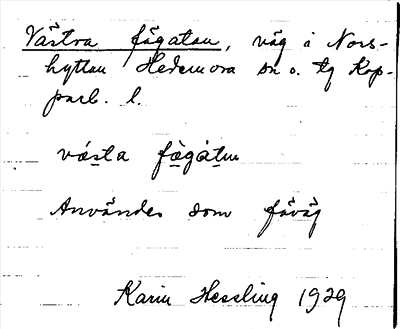 Västra fägatan, väg i Nors-
hyttan Hedemora sn o. tg Kop-
parb. l.
västa fägàtn
Användes som fäväg
Karin Hessling 1929